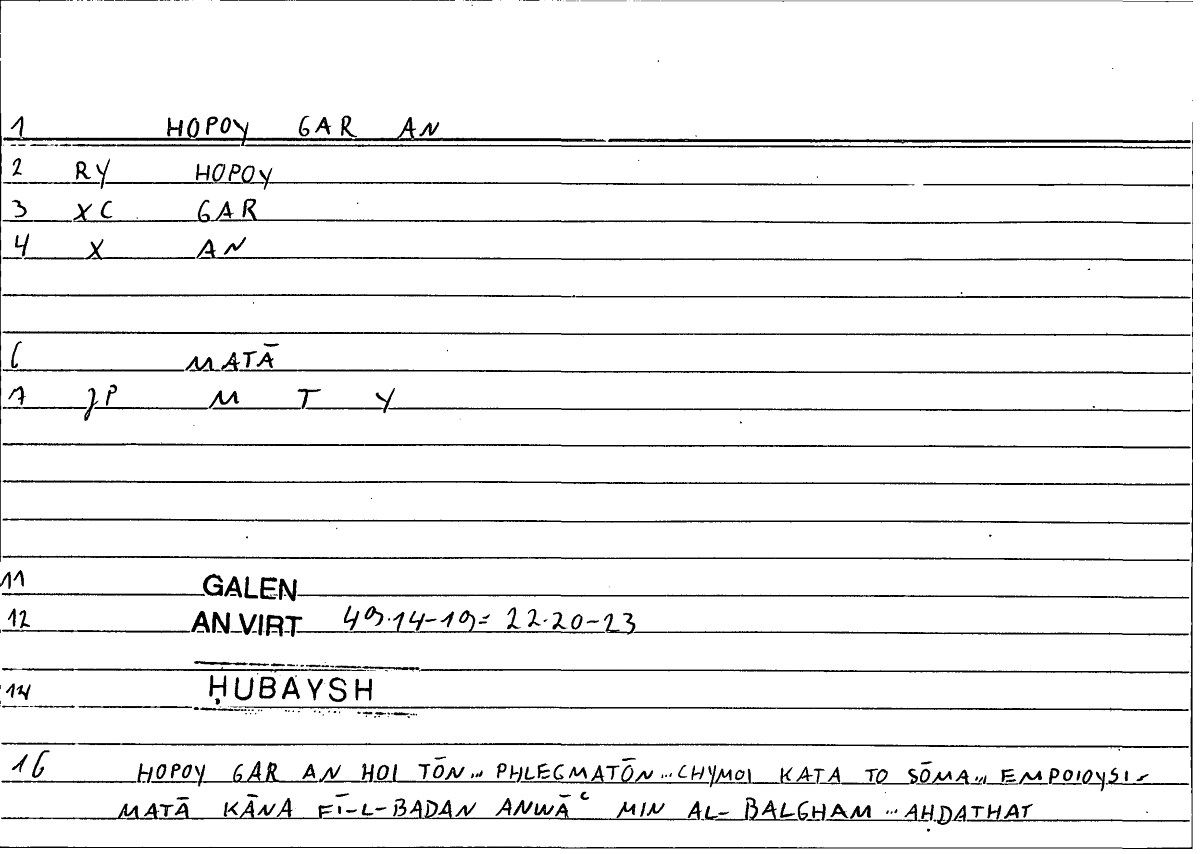 1 HOPOY GAR AN
2 RY HOPOY
3 XC GAR
4 X AN
6 MATĀ
7 JP M T Y
11 GALEN
12 AN.VIRT 49.14-19= 22.20-23
14 ḤUBAYSH
16 HOPOY GAR AN HOI TŌN... PHLEGMATŌN... CHYMOI KATA TO SŌMA... EMPOIOYSI-
MATĀ KĀNA FĪ-L-BADAN ANWĀʿ MIN AL-BALGHAM ... AḤDATHAT